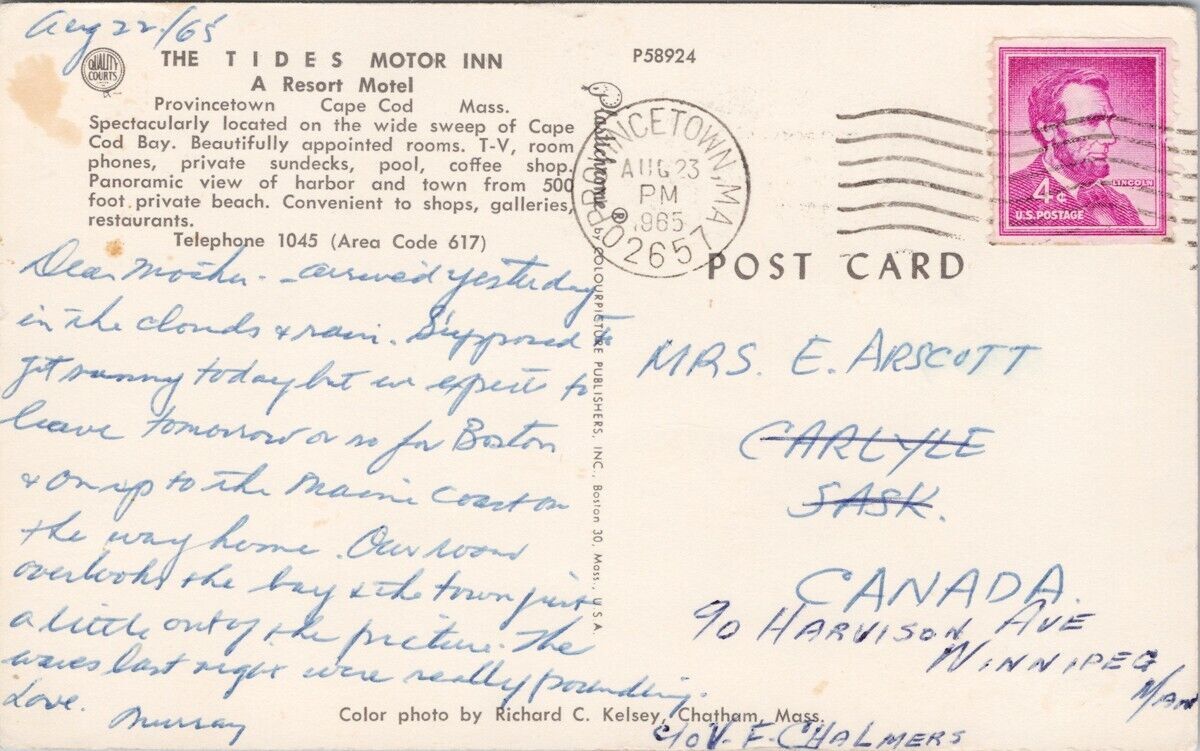 Aug 22/65
QUALITY COURTS
THE TIDES MOTOR INN
A Resort Motel
Provincetown Cape Cod Mass.
Spectacularly located on the wide sweep of Cape
Cod Bay. Beautifully appointed rooms. T-V, room
phones, private sundecks, pool, coffee shop.
Panoramic view of harbor and town from 500
foot private beach. Convenient to shops, galleries,
restaurants.
Telephone 1045 (Area Code 617)
Dear Mother - arrived yesterday
in the clouds & rain. Supposed to
get sunny today but we expect to
leave tomorrow or so for Boston
& on up to the Maine Coast on
the way home. Our room
overlooks the bay & the town just
a little out of the picture. The
waves last night were really pounding.
Love.
Murray
Color photo by Richard C. Kelsey, Chatham, Mass.
P58924
Plastichrome ® by COLOURPICTURE PUBLISHERS, INC., Boston 30, Mass., U.S.A.
PROVINCETOWN, MA
AUG 23
PM
1965
02657
4¢
LINCOLN
U.S. POSTAGE
POST CARD
MRS. E. ARSCOTT
CARLYLE
SASK.
CANADA.
90 HARVISON AVE
WINNIPEG
MAN
c/o V. F. CHALMERS